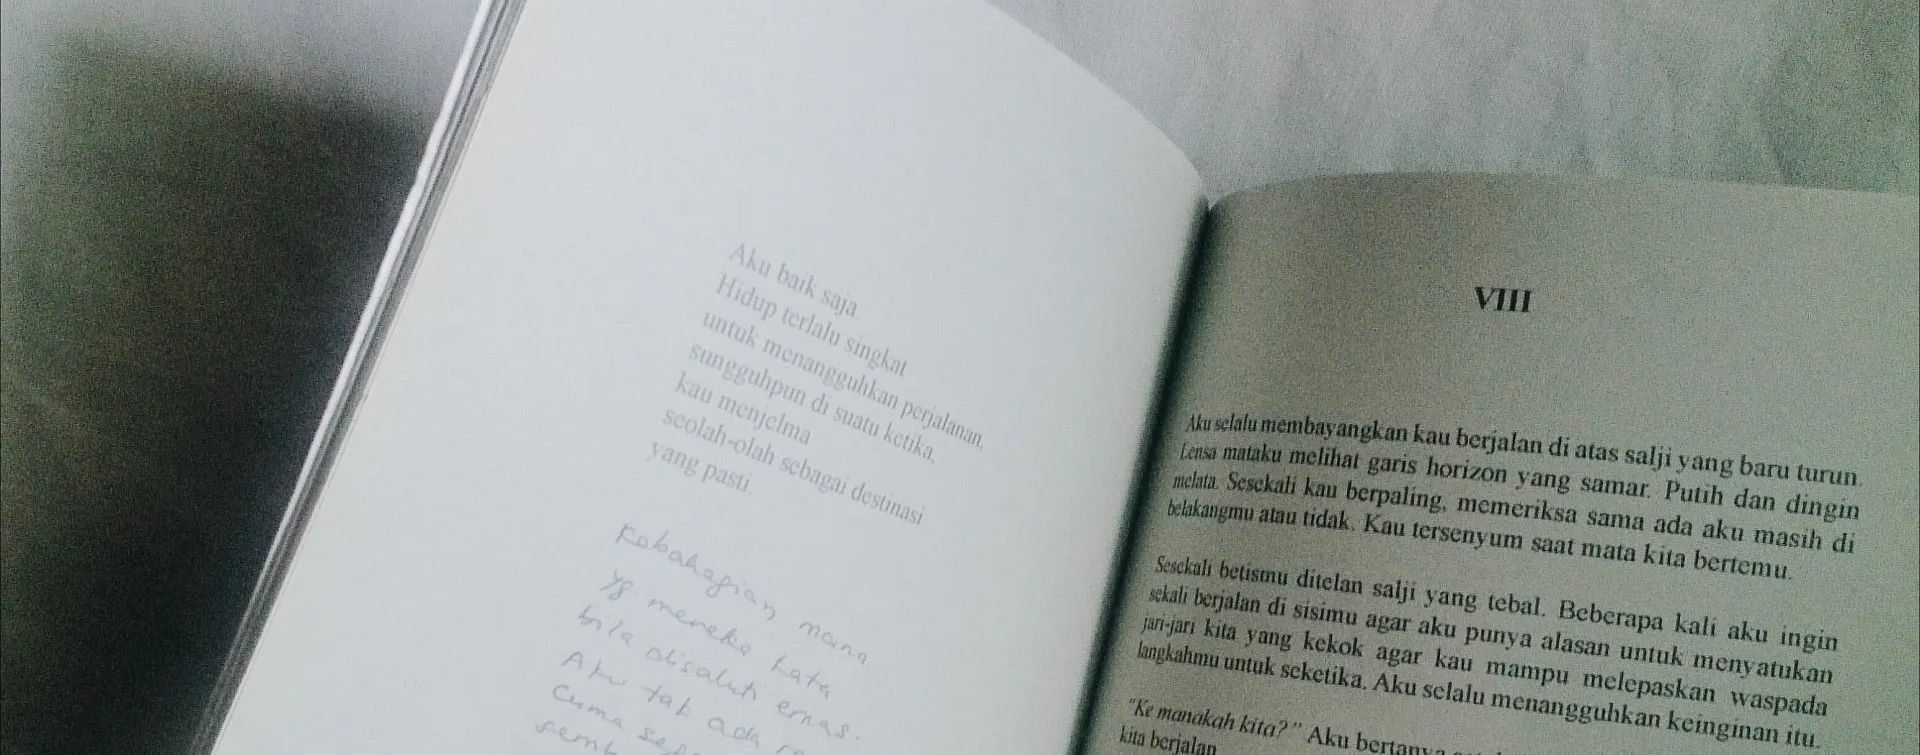 Aku baik saja.
Hidup terlalu singkat
untuk menangguhkan perjalanan,
sungguhpun di suatu ketika,
kau menjelma
seolah-olah sebagai destinasi
yang pasti.
Kebahagian mana
yg mereka kata
bila disaluti emas.
Aku tak ada
Cuma
VIII
Aku selalu membayangkan kau berjalan di atas salji yang baru turun.
Lensa mataku melihat garis horizon yang samar. Putih dan dingin
melata. Sesekali kau berpaling, memeriksa sama ada aku masih di
belakangmu atau tidak. Kau tersenyum saat mata kita bertemu.
Sesekali betismu ditelan salji yang tebal. Beberapa kali aku ingin
sekali berjalan di sisimu agar aku punya alasan untuk menyatukan
jari-jari kita yang kekok agar kau mampu melepaskan waspada
langkahmu untuk seketika. Aku selalu menangguhkan keinginan itu.
"Ke manakah kita?" Aku bertanya
kita berjalan